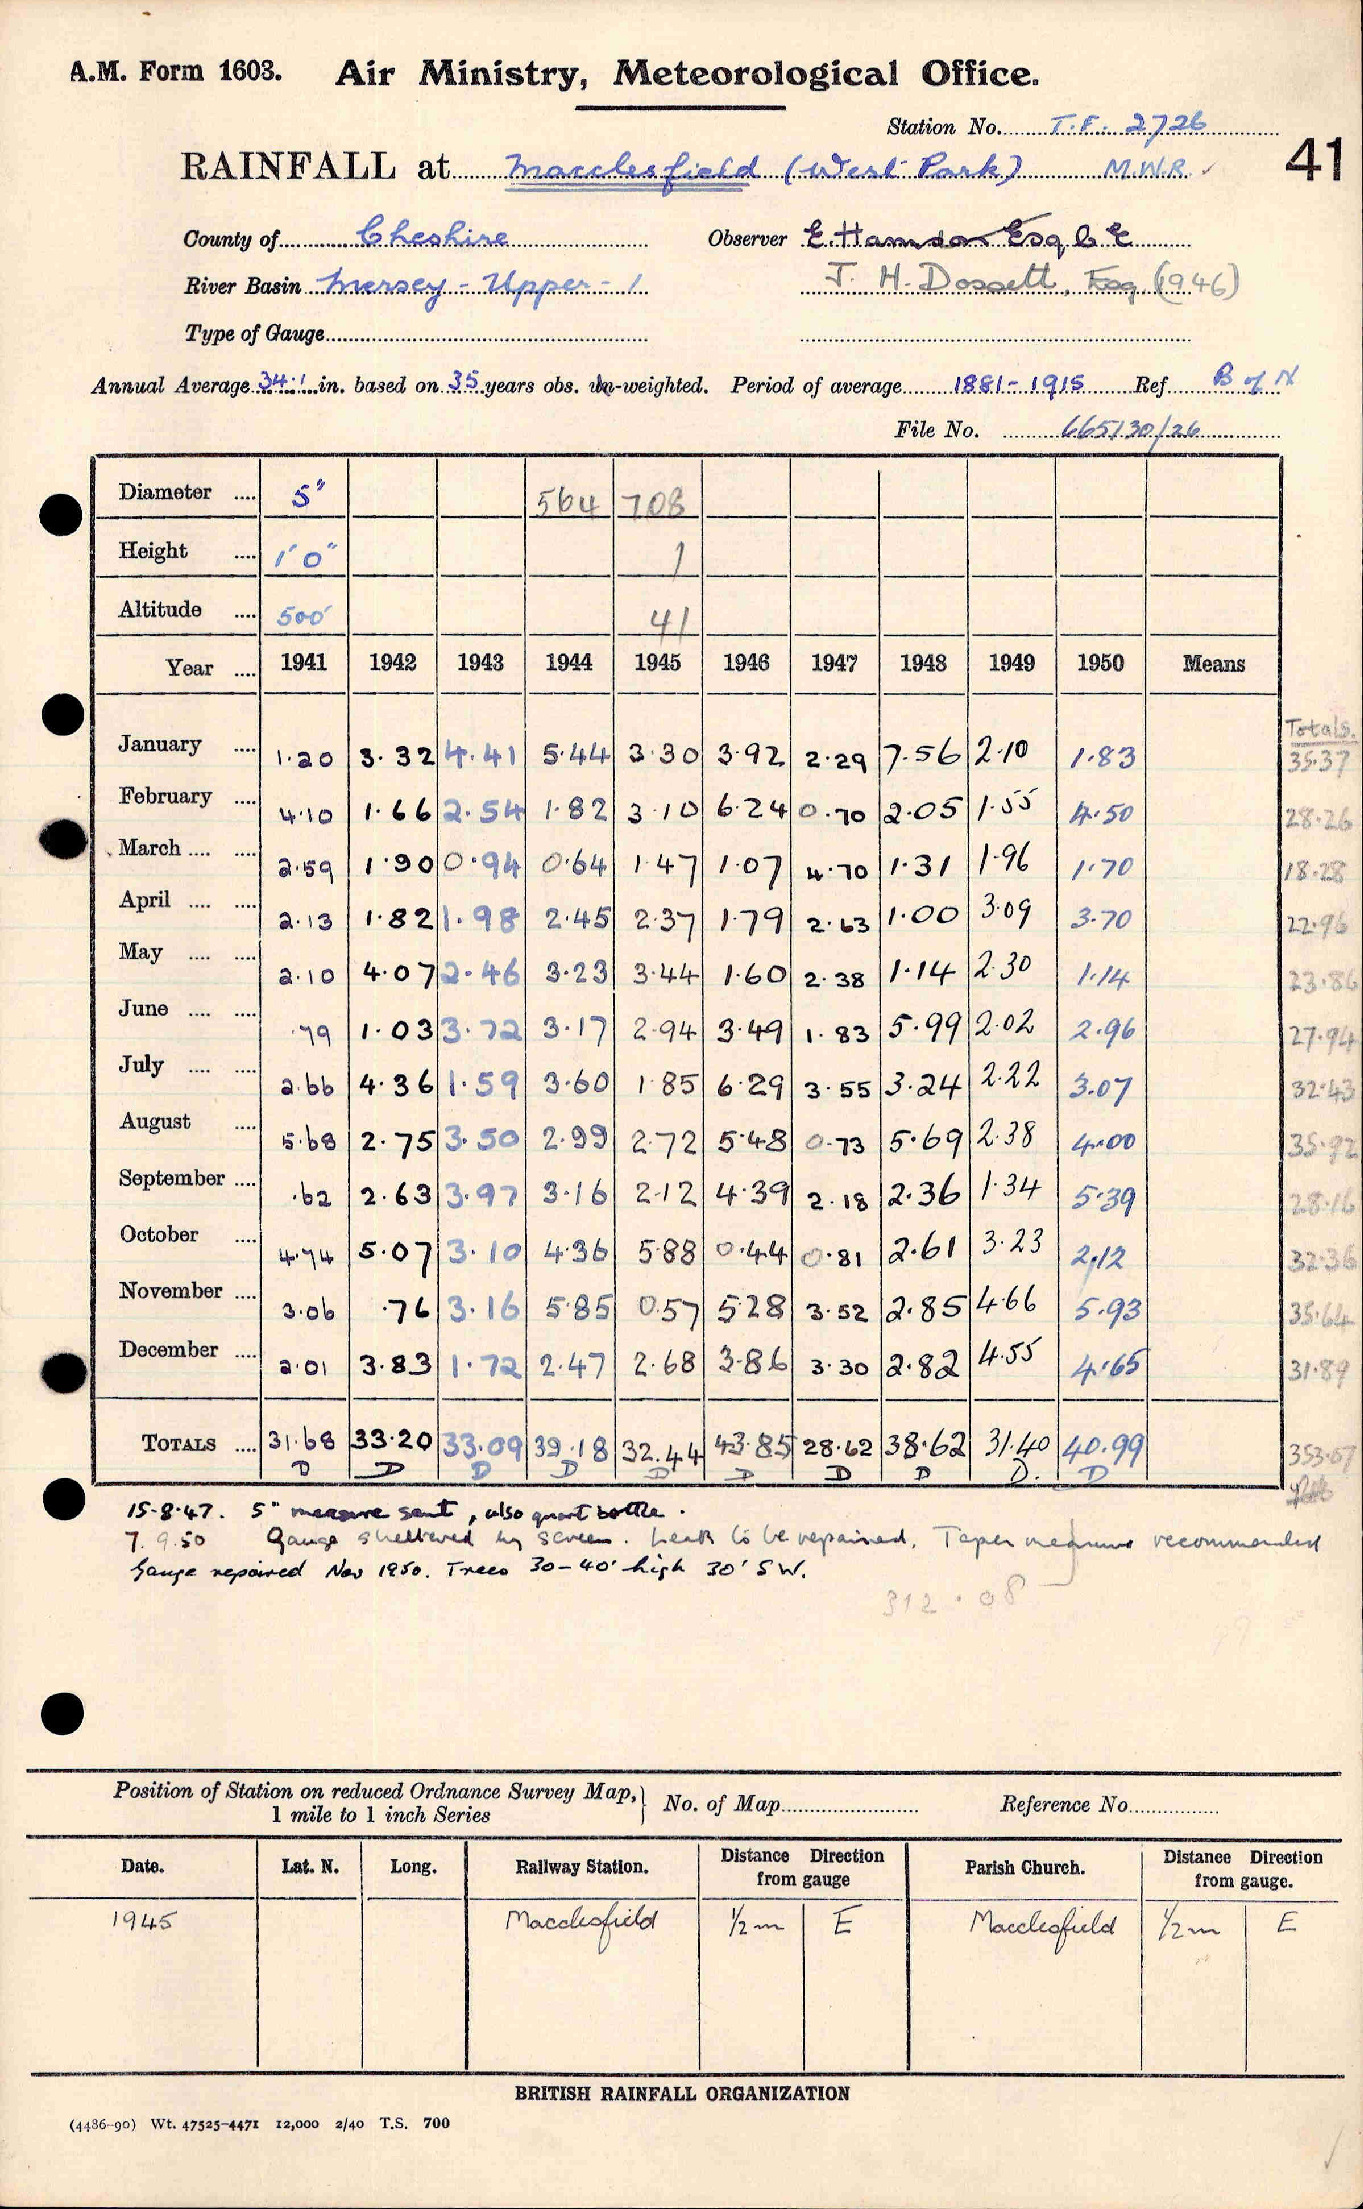 A.M. Form 1603. Air Ministry, Meteorological Office.
Station No. T.F. 2726
RAINFALL at Macclesfield (West Park) M.W.R. ✓
41
County of Cheshire Observer E. Esq C E
River Basin Mersey - Upper - 1 J. H. Dossett, Esq (1946)
Type of Gauge
Annual Average 34.1 in. based on 35 years obs. un-weighted. Period of average 1881-1915 Ref B of N
File No. 665130/26
Diameter .... 5" 564 708
Height .... 1'0" 1
Altitude .... 500' 41
Year .... 1941 1942 1943 1944 1945 1946 1947 1948 1949 1950 Means
Totals.
January .... 1.20 3.32 4.41 5.44 3.30 3.92 2.29 7.56 2.10 1.83 35.37
February .... 4.10 1.66 2.54 1.82 3.10 6.24 0.70 2.05 1.55 4.50 28.26
March .... .... 2.59 1.90 0.94 0.64 1.47 1.07 4.70 1.31 1.96 1.70 18.28
April .... .... 2.13 1.82 1.98 2.45 2.37 1.79 2.63 1.00 3.09 3.70 22.96
May .... .... 2.10 4.07 2.46 3.23 3.44 1.60 2.38 1.14 2.30 1.14 23.86
June .... .... .79 1.03 3.72 3.17 2.94 3.49 1.83 5.99 2.02 2.96 27.94
July .... .... 2.66 4.36 1.59 3.60 1.85 6.29 3.55 3.24 2.22 3.07 32.43
August .... 5.68 2.75 3.50 2.99 2.72 5.48 0.73 5.69 2.38 4.00 35.92
September .... .62 2.63 3.97 3.16 2.12 4.39 2.18 2.36 1.34 5.39 28.16
October .... 4.74 5.07 3.10 4.36 5.88 0.44 0.81 2.61 3.23 2.12 32.36
November .... 3.06 .76 3.16 5.85 0.57 5.28 3.52 2.85 4.66 5.93 35.64
December .... 2.01 3.83 1.72 2.47 2.68 3.86 3.30 2.82 4.55 4.65 31.89
TOTALS .... 31.68 33.20 33.09 39.18 32.44 43.85 28.62 38.62 31.40 40.99 353.07
D D D D D D D D D. D
15-8-47. 5" measure sent, also quart bottle.
7.9.50 Gauge sheltered by screen. Leak to be repaired. Taper measure recommended
Gauge repaired Nov 1950. Trees 30-40' high 30' SW.
312.08
Position of Station on reduced Ordnance Survey Map, 1 mile to 1 inch Series } No. of Map Reference No.
Date. Lat. N. Long. Railway Station. Distance Direction from gauge Parish Church. Distance Direction from gauge.
1945 Macclesfield 1/2 m E Macclesfield 1/2 m E
BRITISH RAINFALL ORGANIZATION
(4486-90) Wt. 47525-4471 12,000 2/40 T.S. 700